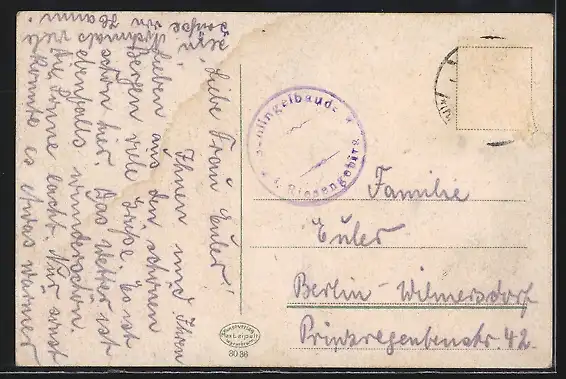 Liebe Frau Euler!
Ihnen und Ihren
Lieben aus den schönen
Bergen viele Grüße. Es ist
schön hier. Das Wetter ist
ebenfalls wunderschön
die Sonne lacht. Nur sonst
könnte es etwas wärmer
sein
Nochmals viele
Grüße von
Schlingelbaude
i. Riesengebirge
Familie
Euler
Berlin-Wilmersdorf
Prinzregentenstr. 42.
3036